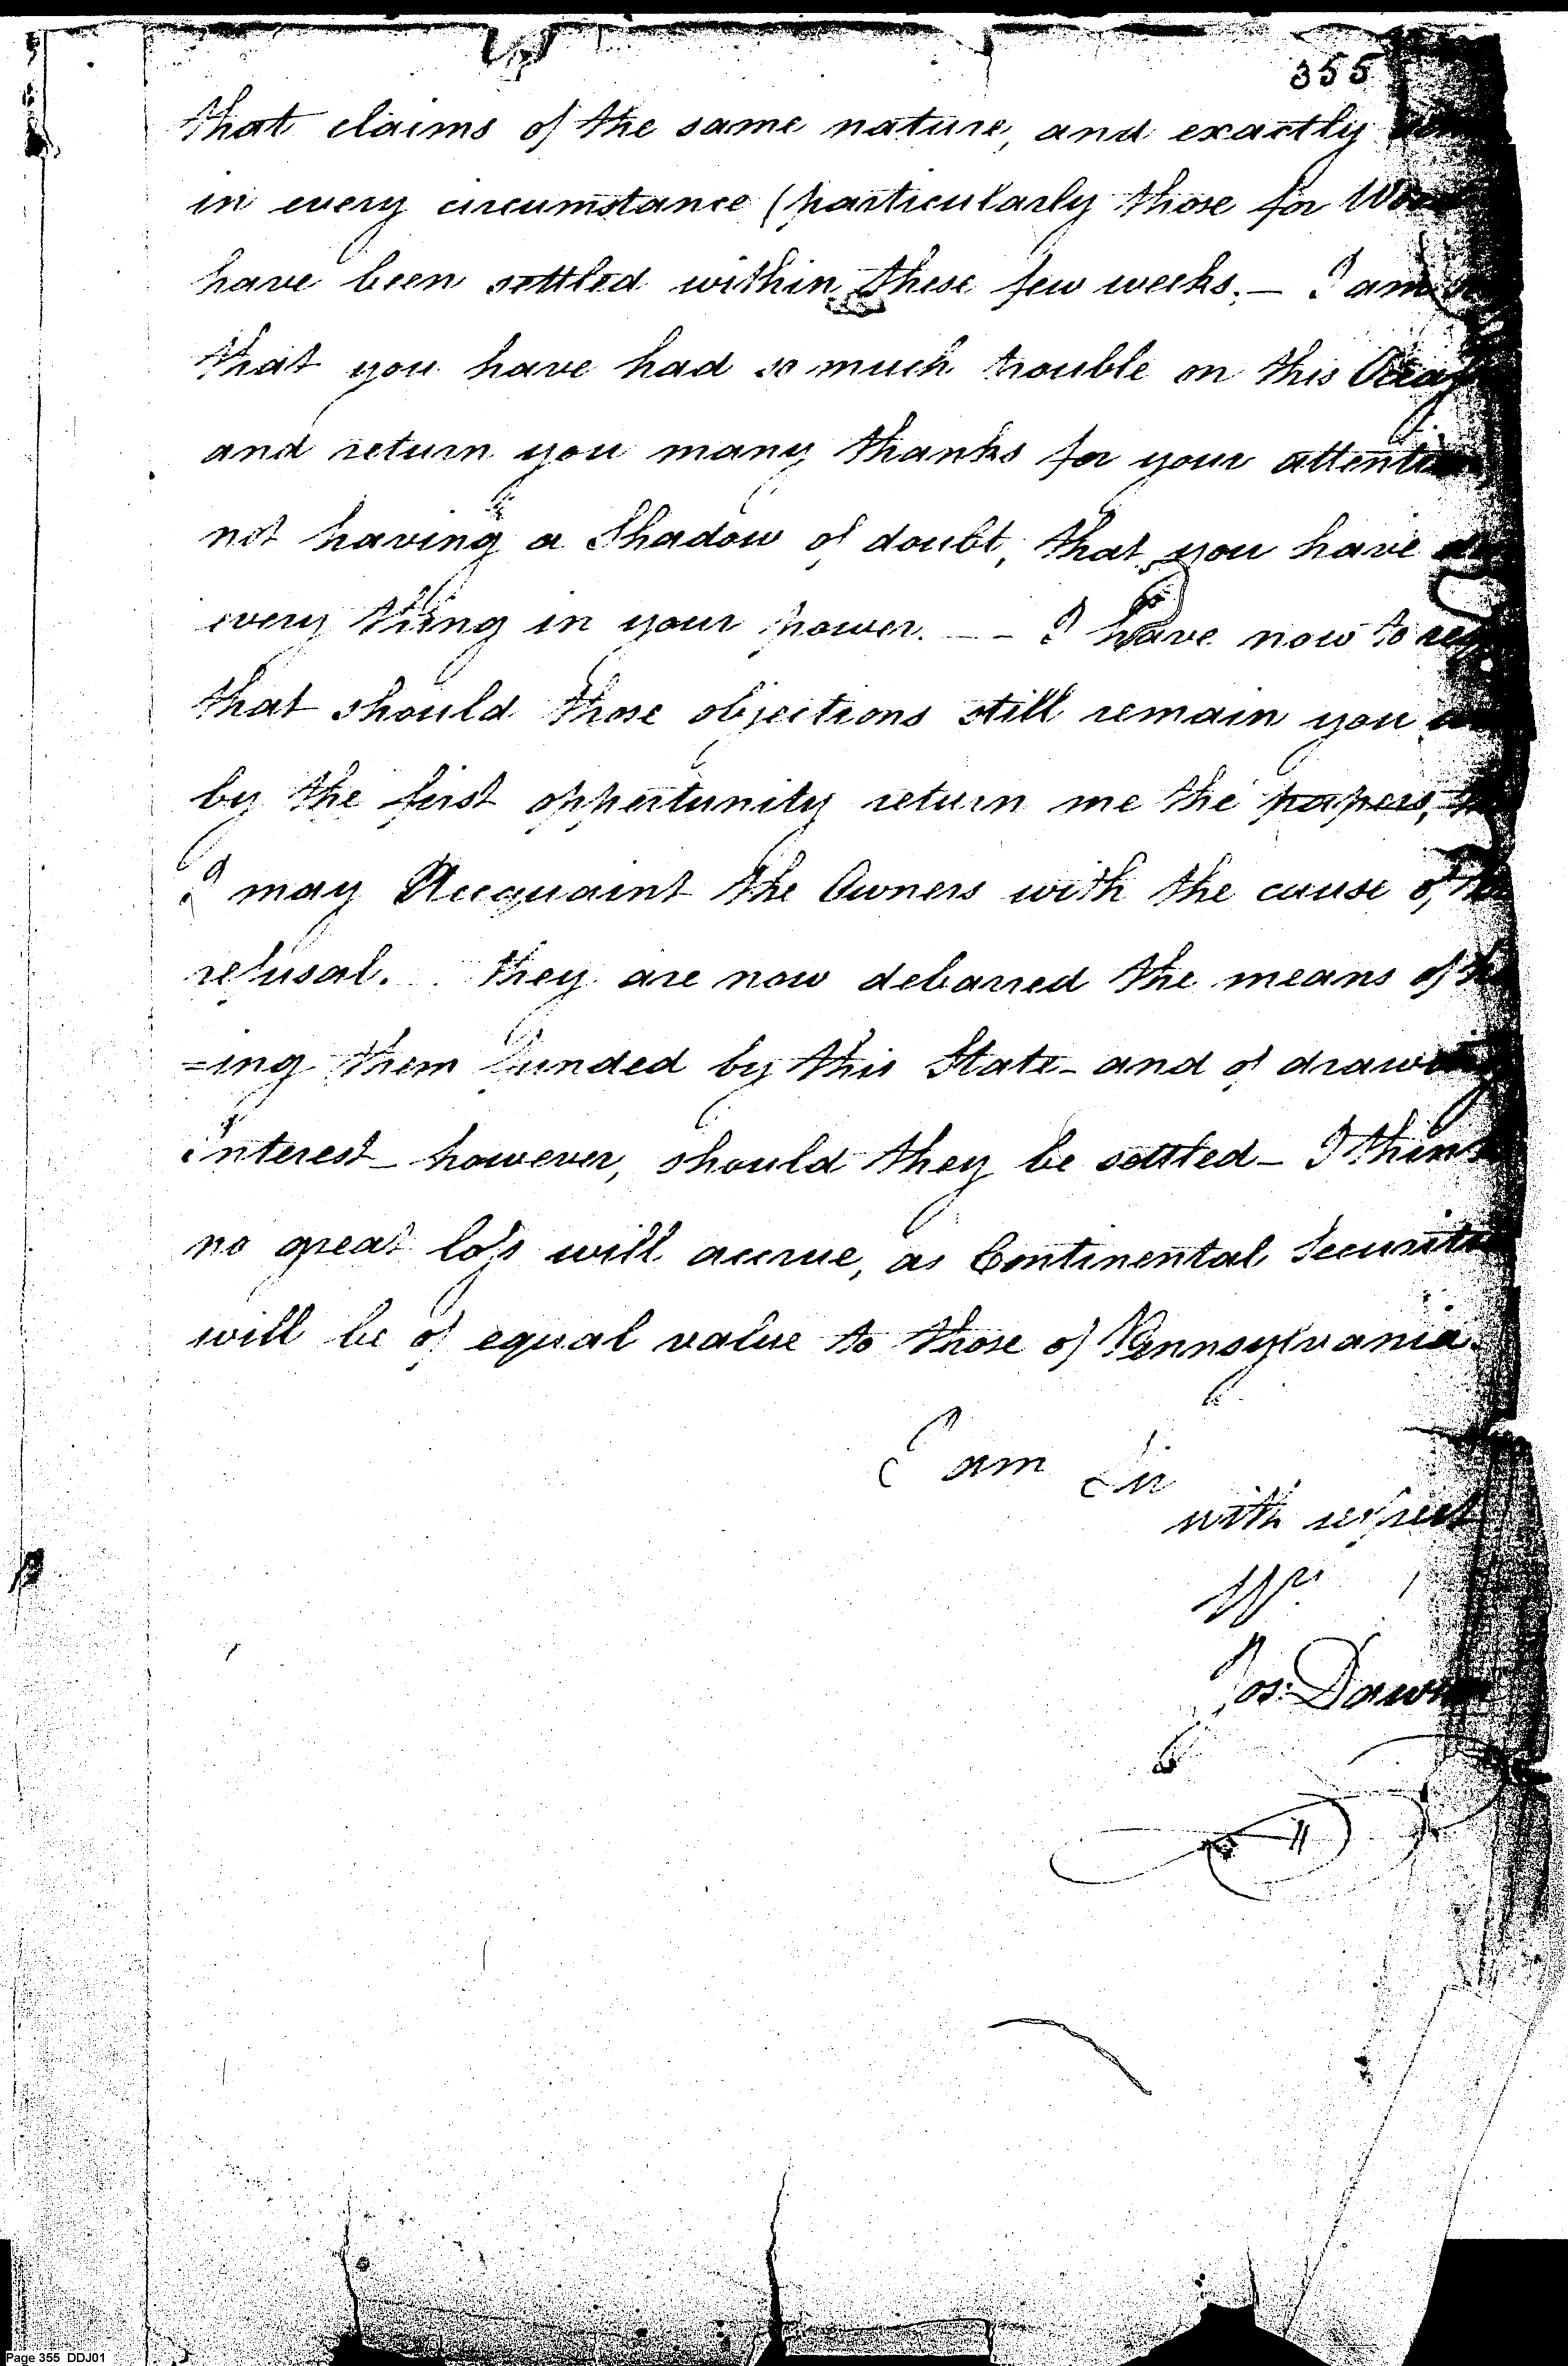 355
that claims of the same nature, and exactly
in every circumstance (particularly those for
have been settled within these few weeks. — I am
that you have had so much trouble on this
and return you many thanks for your
not having a Shadow of doubt, that you have
every thing in your power. — — I have now to
that should those objections still remain you
by the first oppertunity return me the papers,
I may Acquaint the Owners with the cause of
refusal. they are now debarred the means of
=ing them funded by this State - and of
Interest - however, should they be settled - I think
no great loss will accrue, as Continental
will be of equal value to those of Pennsylvania.
I am Sir
with respect
Jos:
Page 355 DDJ01